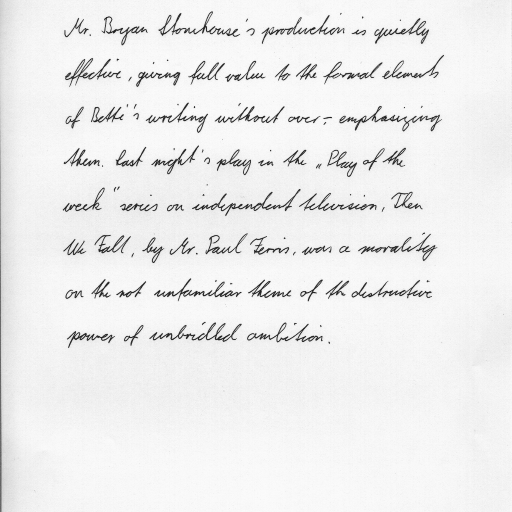 Mr. Bryan Stonehouse's production is quietly
effective, giving full value to the formal elements
of Betti's writing without over-emphasizing
them. Last night's play in the „Play of the
week" series on independent television, Then
We Fall, by Mr. Paul Ferris, was a morality
on the not unfamiliar theme of the destructive
power of unbridled ambition.